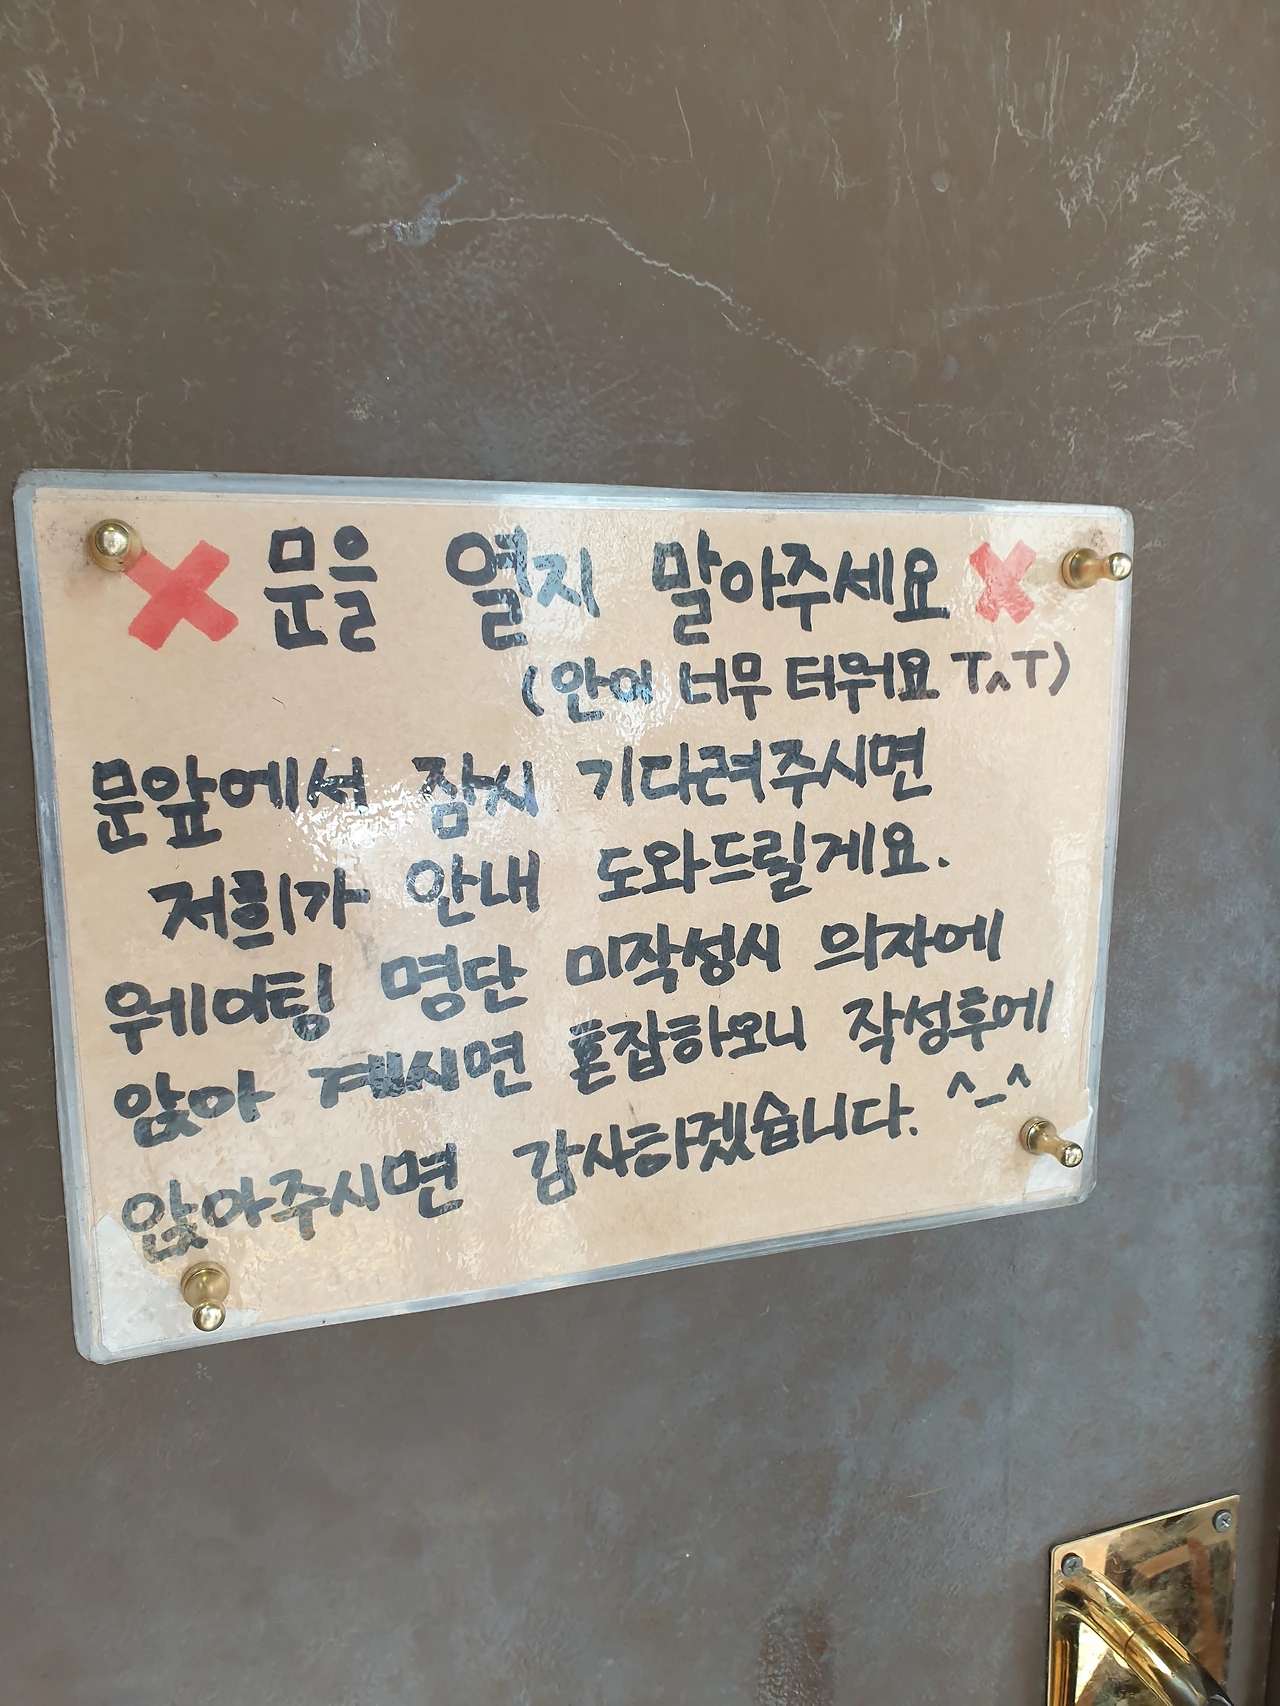 ❌ 문을 열지 말아주세요 ❌
(안이 너무 더워요 T^T)
문앞에서 잠시 기다려주시면
저희가 안내 도와드릴게요.
웨이팅 명단 미작성시 의자에
앉아 계시면 혼잡하오니 작성후에
앉아주시면 감사하겠습니다. ^_^